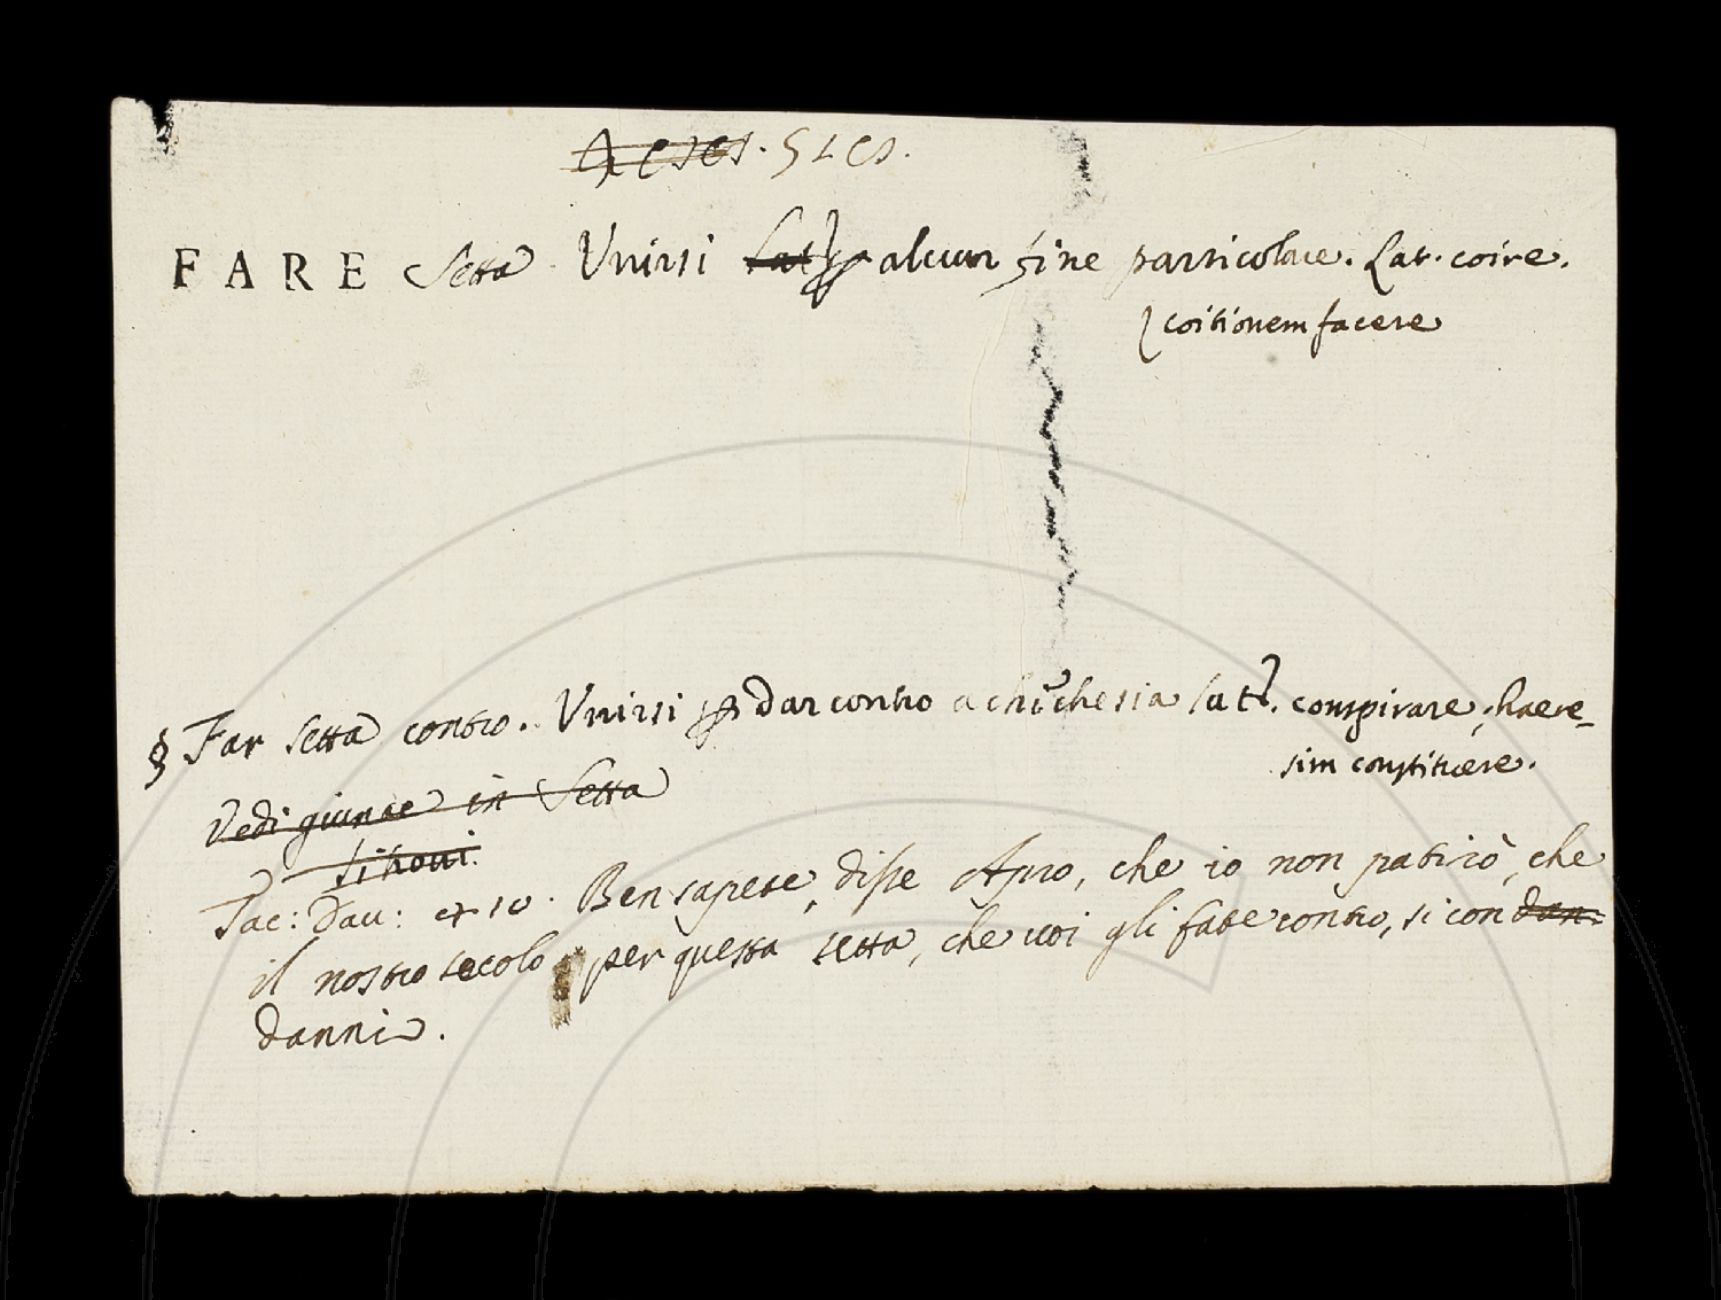 FARE Setta Unirsi Lat per alcun fine particolare. Lat. coire.
coitionem facere
§ Far setta contro. Unirsi per dar contro a chi che sia lat. conspirare, haere-
sim constituere.
Vedi giunte in Setta
si trovi.
Tac: Dav: Ben sapete, disse Apro, che io non patirò, che
il nostro secolo per questa setta, che voi gli fate contro, si con dan-
danni.